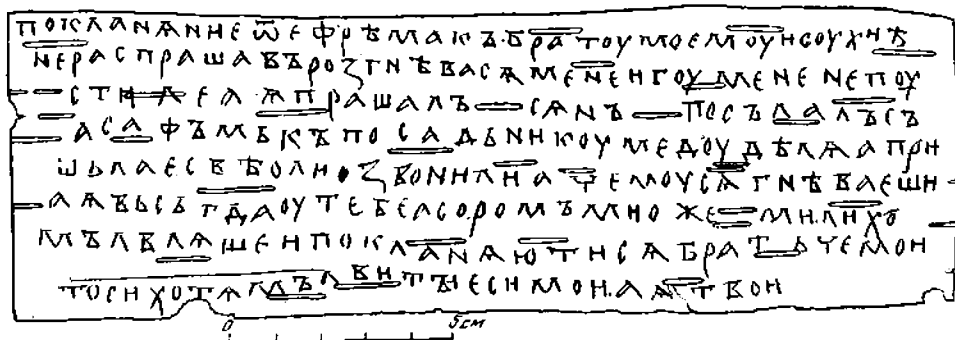 ПОКЛАНѦНИЕѾЕФРѢМАКЪ·БРАТОУМОЕМОУИСОУХИѢ
НЕРАСПРАШАВЪРОЗГНѢВАСѦМЕНЕИГОУМЕНЕНЕПОУ
СТИЛЕАѦПРАШАЛЪСѦНЪПОСЪЛАЛЪСЪ
АСАФЪМЬКЪПОСАДЬНИКОУМЕДОУДѢЛѦАПРИ
ШЬЛАЕСВѢОЛИЗВОНИЛИАЧЕМОУСѦГНѢВАЕШИ
АѦВЬСЬГДАОУТЕБЕАСОРОМЪМНОЖЕМИЛИХО
МЪЛВЛѦШЕИПОКЛАНѦЮТИСѦБРАТЬЧЕМОИ
ТОСИХОТѦМЪЛВИТЫЕСИМОИ·АѦТВОИ
0 5см